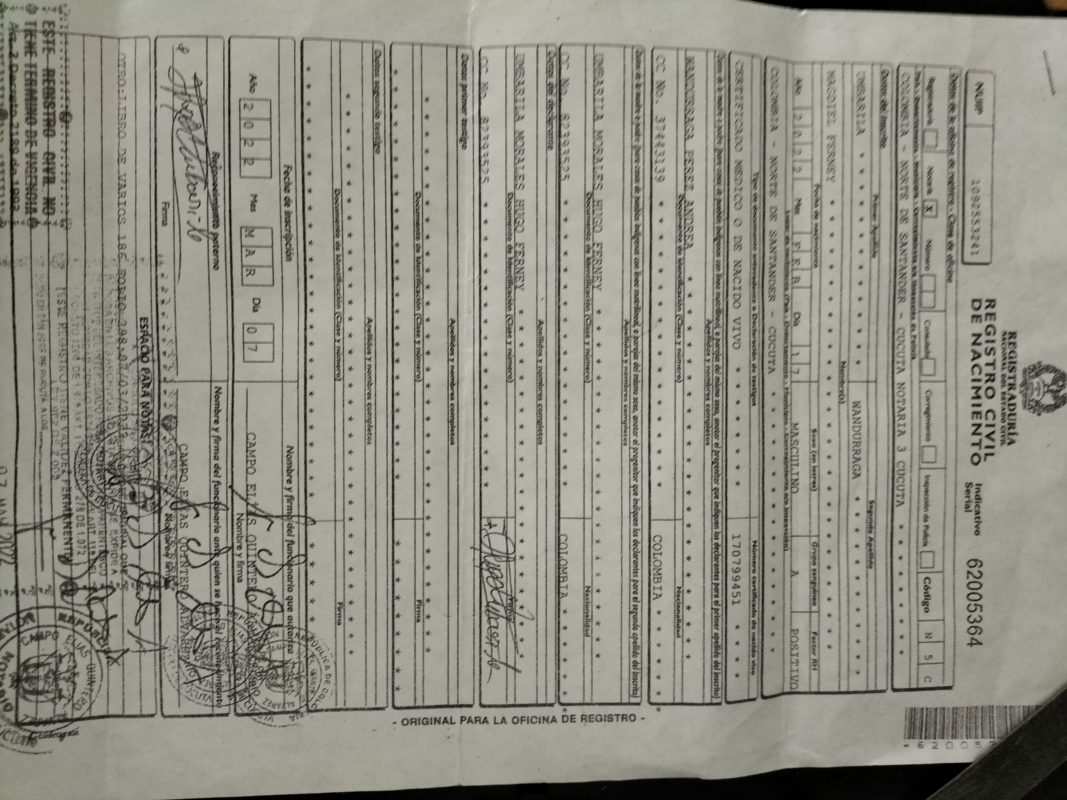 REGISTRADURÍA
NACIONAL DEL ESTADO CIVIL
REGISTRO CIVIL
DE NACIMIENTO
NUIP 1092553241
Indicativo Serial 62005364
*62005
Datos de la oficina de registro - Clase de oficina
Registraduría Notaría X Número Consulado Corregimiento Inspección de Policía Código N 5 C
País - Departamento - Municipio - Corregimiento e/o Inspección de Policía
COLOMBIA - NORTE DE SANTANDER - CUCUTA NOTARIA 3 CUCUTA * * * * * * *
Datos del inscrito
Primer Apellido Segundo Apellido
UMBARILA * * * * * * * * * * MANDURRAGA * * * * * * * *
Nombre(s)
MAGDIEL FERNEY * * * * * * * *
Fecha de nacimiento Sexo (en letras) Grupo sanguíneo Factor RH
Año 2022 Mes FEB Día 17 MASCULINO A POSITIVO
Lugar de nacimiento (País - Departamento - Municipio - Corregimiento e/o Inspección)
COLOMBIA - NORTE DE SANTANDER - CUCUTA * * * * * *
Tipo de documento antecedente o Declaración de testigos Número certificado de nacido vivo
CERTIFICADO MEDICO O DE NACIDO VIVO * * * * * 170799451
MANDURRAGA PEREZ ANDREA * * * * * * * *
Documento de identificación (Clase y número) Nacionalidad
CC No. 37443139 * * * * * * COLOMBIA * * * *
Apellidos y nombres completos
UMBARILA MORALES HUGO FERNEY * * * * * *
Documento de identificación (Clase y número) Nacionalidad
CC No. 82393525 * * * * * * COLOMBIA * * * *
Datos del declarante
Apellidos y nombres completos
UMBARILA MORALES HUGO FERNEY * * * * * *
Documento de identificación (Clase y número) Firma
CC No. 82393525 * * * * * *
Datos primer testigo
Apellidos y nombres completos
Documento de identificación (Clase y número) Firma
Datos segundo testigo
Apellidos y nombres completos
Documento de identificación (Clase y número) Firma
Fecha de inscripción Nombre y firma del funcionario que autoriza
Año 2022 Mes MAR Día 07
CAMPO ELIAS QUINTERO
Nombre y firma
Reconocimiento paterno Nombre y firma del funcionario ante quien se hace el reconocimiento
CAMPO ELIAS QUINTERO ALVAREZ
Firma Nombre y firma
ESPACIO PARA NOTAS
OTRO:LIBRO DE VARIOS 186 FOLIO 298
ESTE REGISTRO CIVIL NO
TIENE TERMINO DE VIGENCIA
Art. 2 Decreto 2189 de 1983
ESTE REGISTRO TIENE VALIDEZ PERMANENTE
07 MAR 2022
- ORIGINAL PARA LA OFICINA DE REGISTRO -